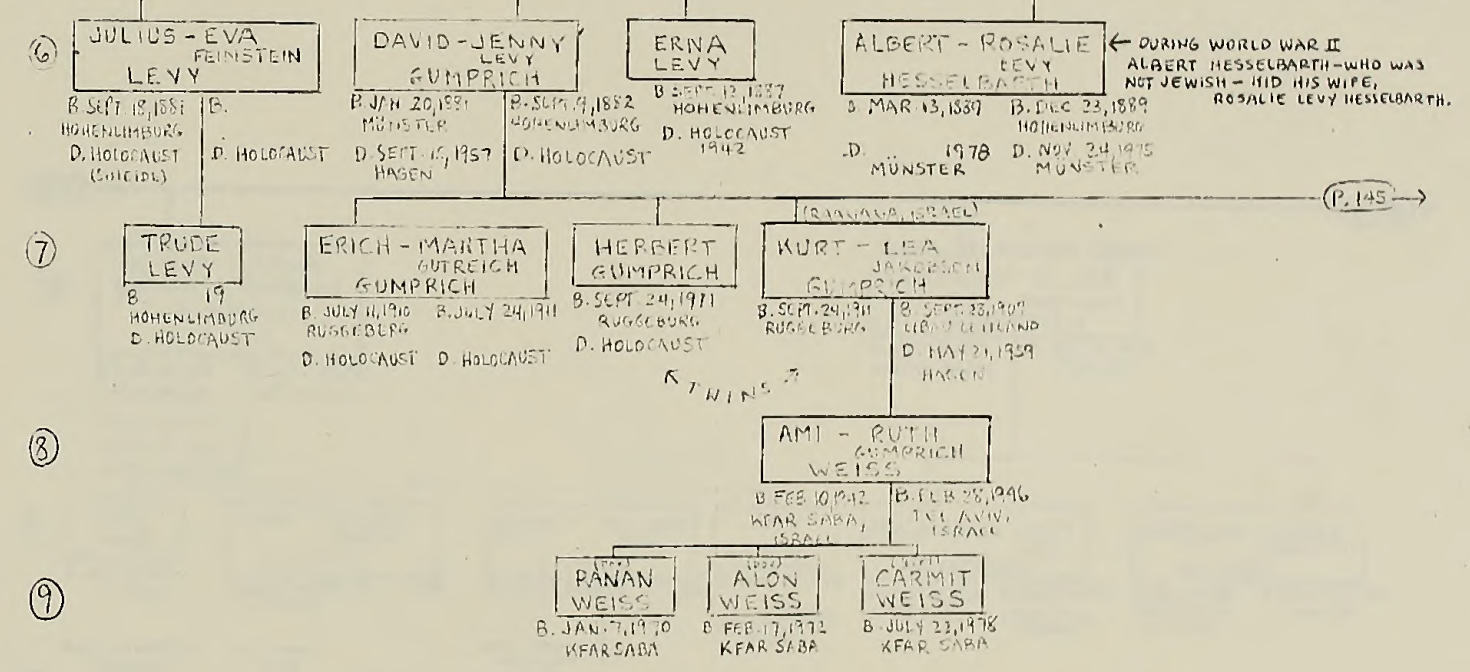 ⑥
JULIUS - EVA
FEINSTEIN
LEVY
B. SEPT 18, 1881
HOHENLIMBURG
D. HOLOCAUST
(SUICIDE)
B.
D. HOLOCAUST
DAVID - JENNY
LEVY
GUMPRICH
B. JAN 20, 1881
MÜNSTER
D. SEPT. 15, 1957
HAGEN
B. SEPT. 9, 1882
HOHENLIMBURG
D. HOLOCAUST
ERNA
LEVY
B SEPT 12, 1887
HOHENLIMBURG
D. HOLOCAUST
1942
ALBERT - ROSALIE
LEVY
HESSELBARTH
B MAR 13, 1889
D. 1978
MÜNSTER
B. DEC 23, 1889
HOHENLIMBURG
D. NOV 24, 1975
MÜNSTER
← DURING WORLD WAR II
ALBERT HESSELBARTH - WHO WAS
NOT JEWISH - HID HIS WIFE,
ROSALIE LEVY HESSELBARTH.
P. 145 →
⑦
TRUDE
LEVY
B 19
HOHENLIMBURG
D. HOLOCAUST
ERICH - MARTHA
GUTREICH
GUMPRICH
B. JULY 11, 1910
RUGGEBERG
D. HOLOCAUST
B. JULY 24, 1911
D. HOLOCAUST
HERBERT
GUMPRICH
B. SEPT. 24, 1911
RUGGEBURG
D. HOLOCAUST
(RAANANA, ISRAEL)
KURT - LEA
JAKOBSON
GUMPRICH
B. SEPT. 24, 1911
RUGGEBURG
B. SEPT 28, 1907
LIBAU LETTLAND
D. MAY 21, 1959
HAGEN
↖ TWINS ↗
⑧
AMI - RUTH
GUMPRICH
WEISS
B FEB 10, 1942
KFAR SABA,
ISRAEL
B. FEB 28, 1946
TEL AVIV,
ISRAEL
⑨
WEISS
B. JAN. 7, 1970
KFAR SABA
ALON
WEISS
B FEB. 17, 1972
KFAR SABA
CARMIT
WEISS
B. JULY 23, 1978
KFAR SABA